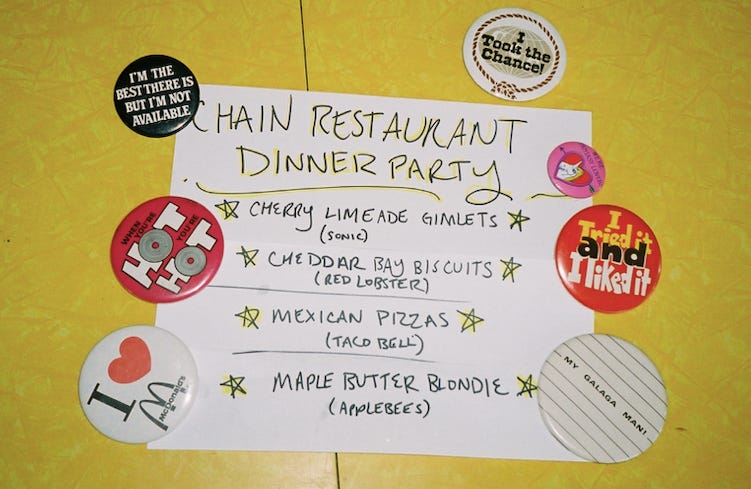 I
Took the
Chance!
I'M THE
BEST THERE IS
BUT I'M NOT
AVAILABLE
CHAIN RESTAURANT
DINNER PARTY
CHERRY LIMEADE GIMLETS
(SONIC)
CHEDDAR BAY BISCUITS
(RED LOBSTER)
MEXICAN PIZZAS
(TACO BELL)
MAPLE BUTTER BLONDIE
(APPLEBEES)
WHEN YOU'RE
HOT
YOU'RE
HOT
I
Tried it
and
I liked it
I
McDonald's
MY GALAGA MAN!